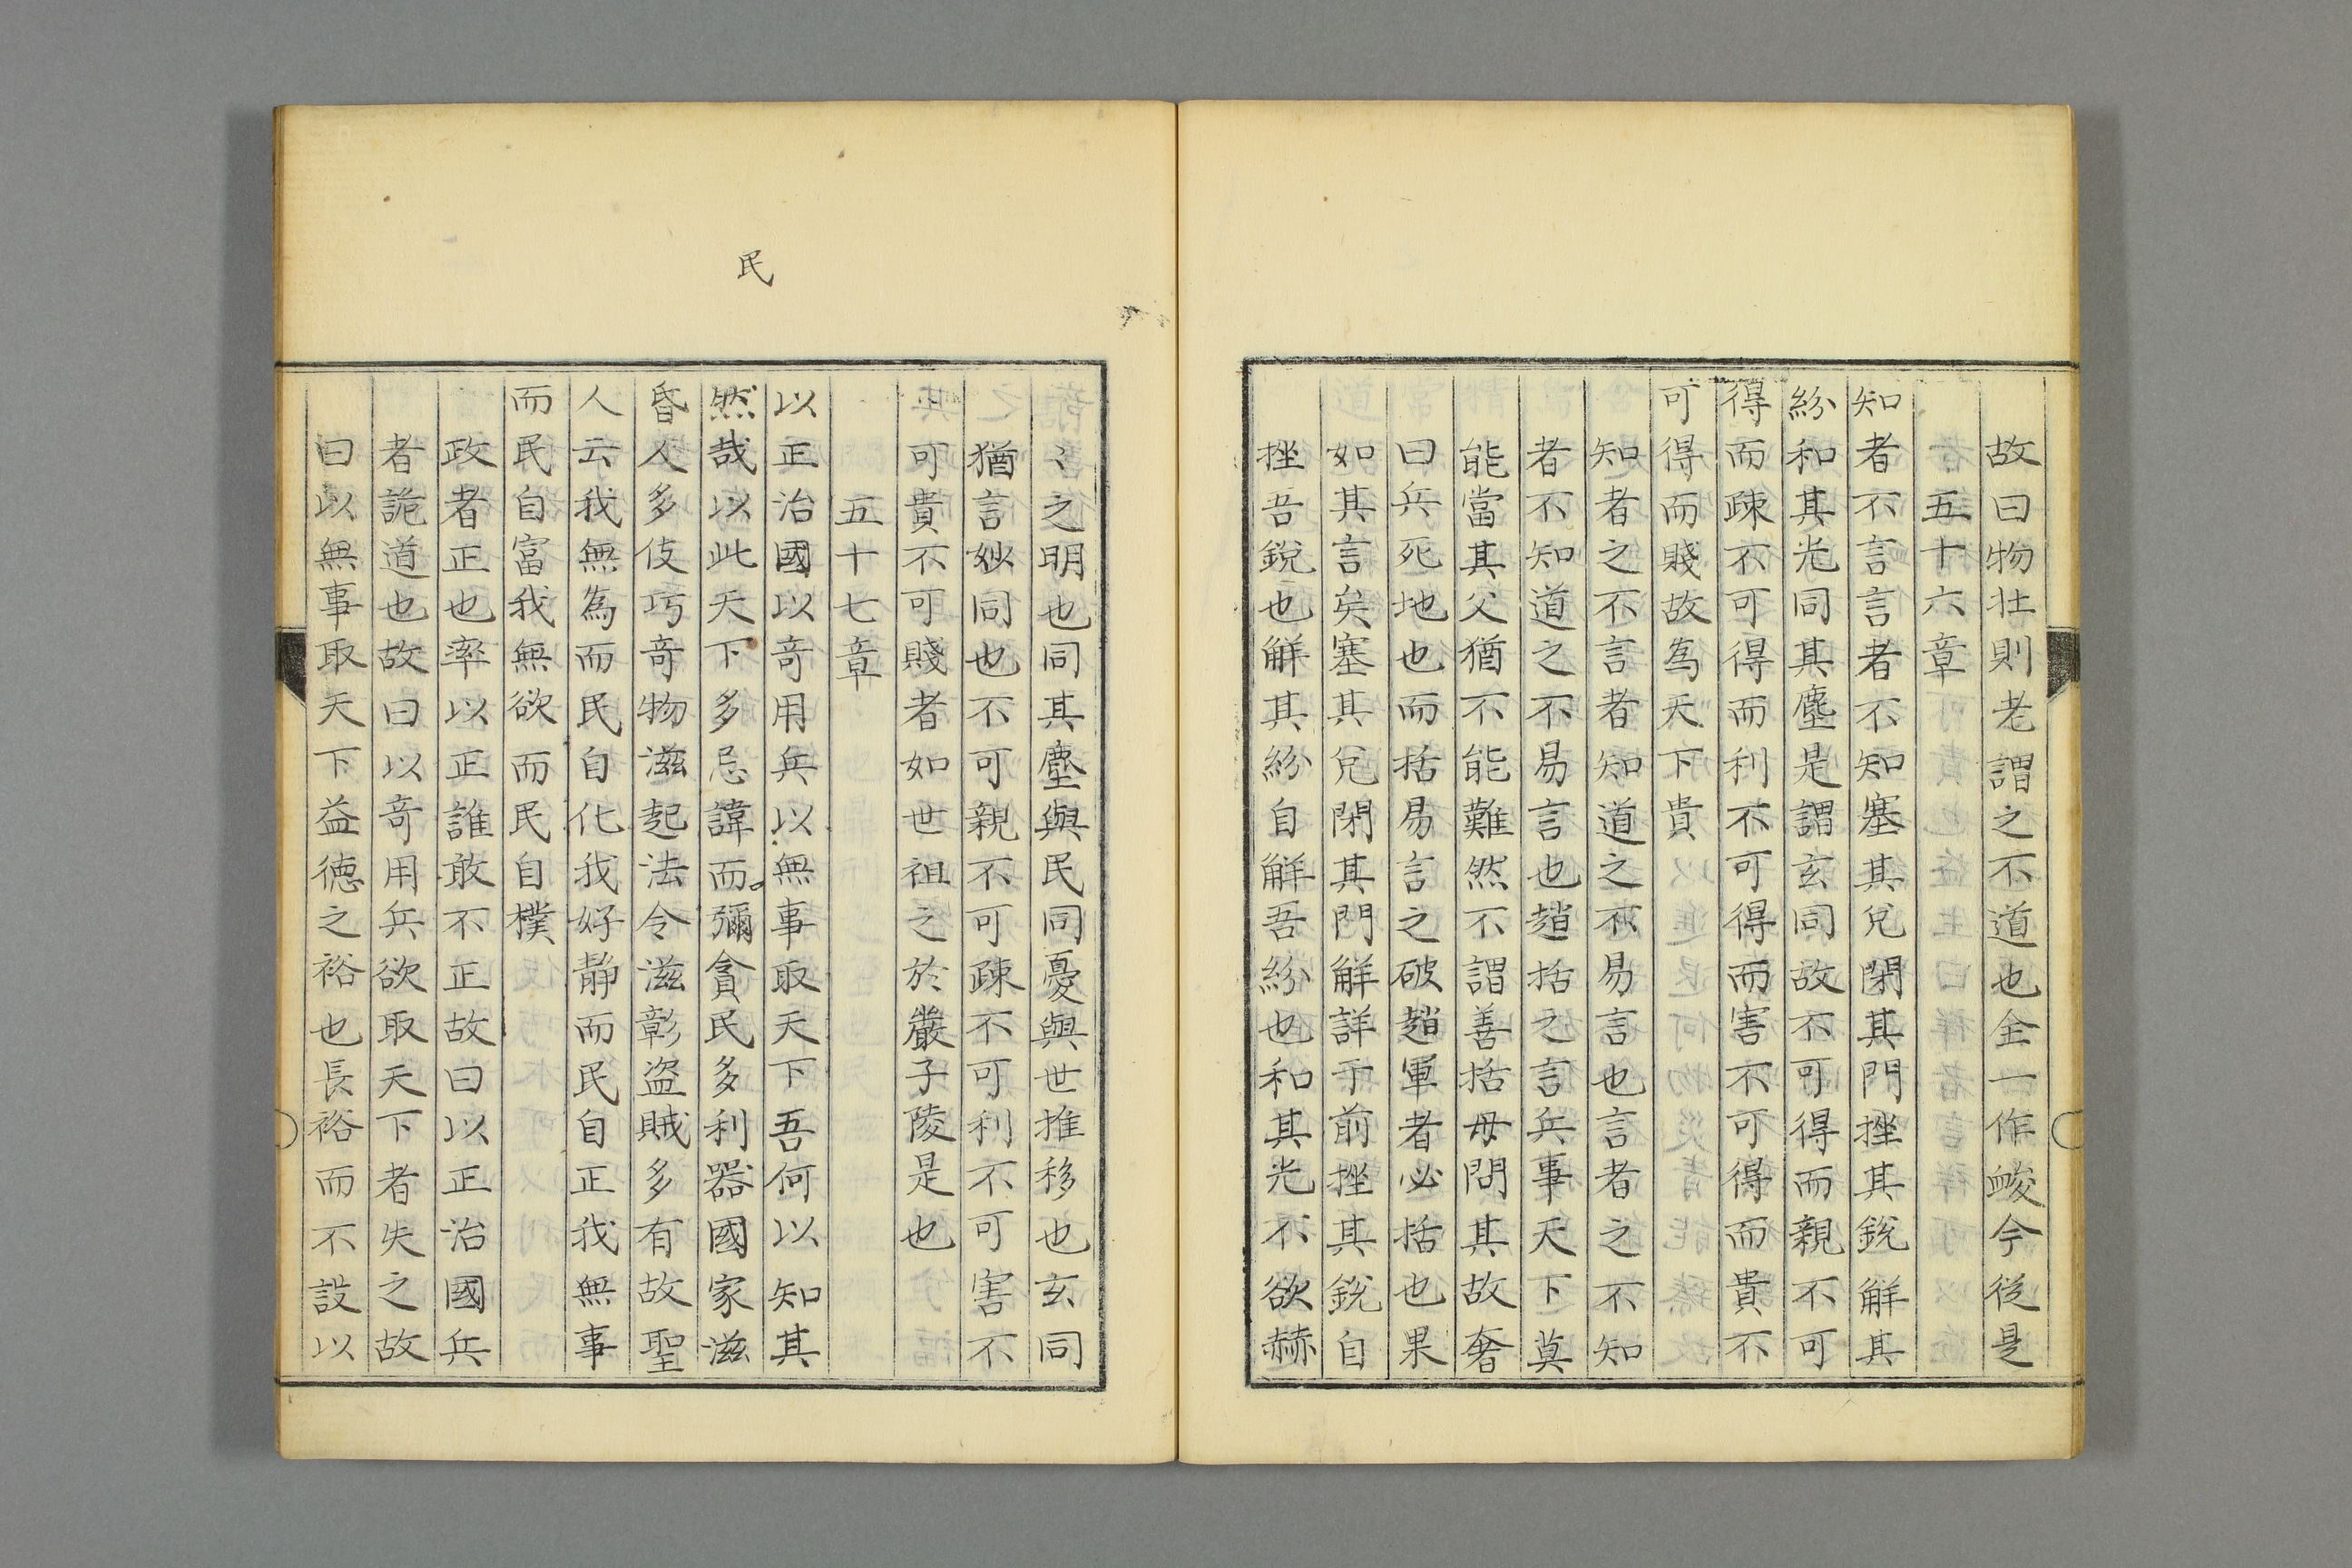 故曰物壮則老謂之不道也全一作䘒今從是
五十六章
知者不言言者不知塞其兌閉其門挫其銳解其
紛和其光同其塵是謂玄同故不可得而親不可
得而疎不可得而利不可得而害不可得而貴不
可得而賤故為天下貴
知者之不言者知道之不易言也言者之不知
者不知道之不易言也趙括之言兵事天下莫
能當其父猶不能難然不謂善括母問其故奢
曰兵死地也而括易言之破趙軍者必括也果
如其言矣塞其兌閉其門解詳于前挫其銳自
挫吾銳也解其紛自解吾紛也和其光不欲赫
〻之明也同其塵與民同憂與世推移也玄同
猶言妙同也不可親不可疎不可利不可害不
可貴不可賤者如世祖之於嚴子陵是也
五十七章
以正治國以奇用兵以無事取天下吾何以知其
然哉以此天下多忌諱而彌貪民多利器國家滋
昏人多伎巧奇物滋起法令滋彰盗賊多有故聖
人云我無為而民自化我好静而民自正我無事
而民自富我無欲而民自樸
政者正也率以正誰敢不正故曰以正治國兵
者詭道也故曰以奇用兵欲取天下者失之故
曰以無事取天下益德之裕也長裕而不設以
民